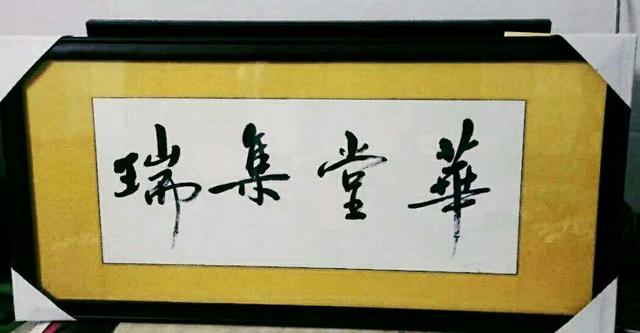 華堂集瑞